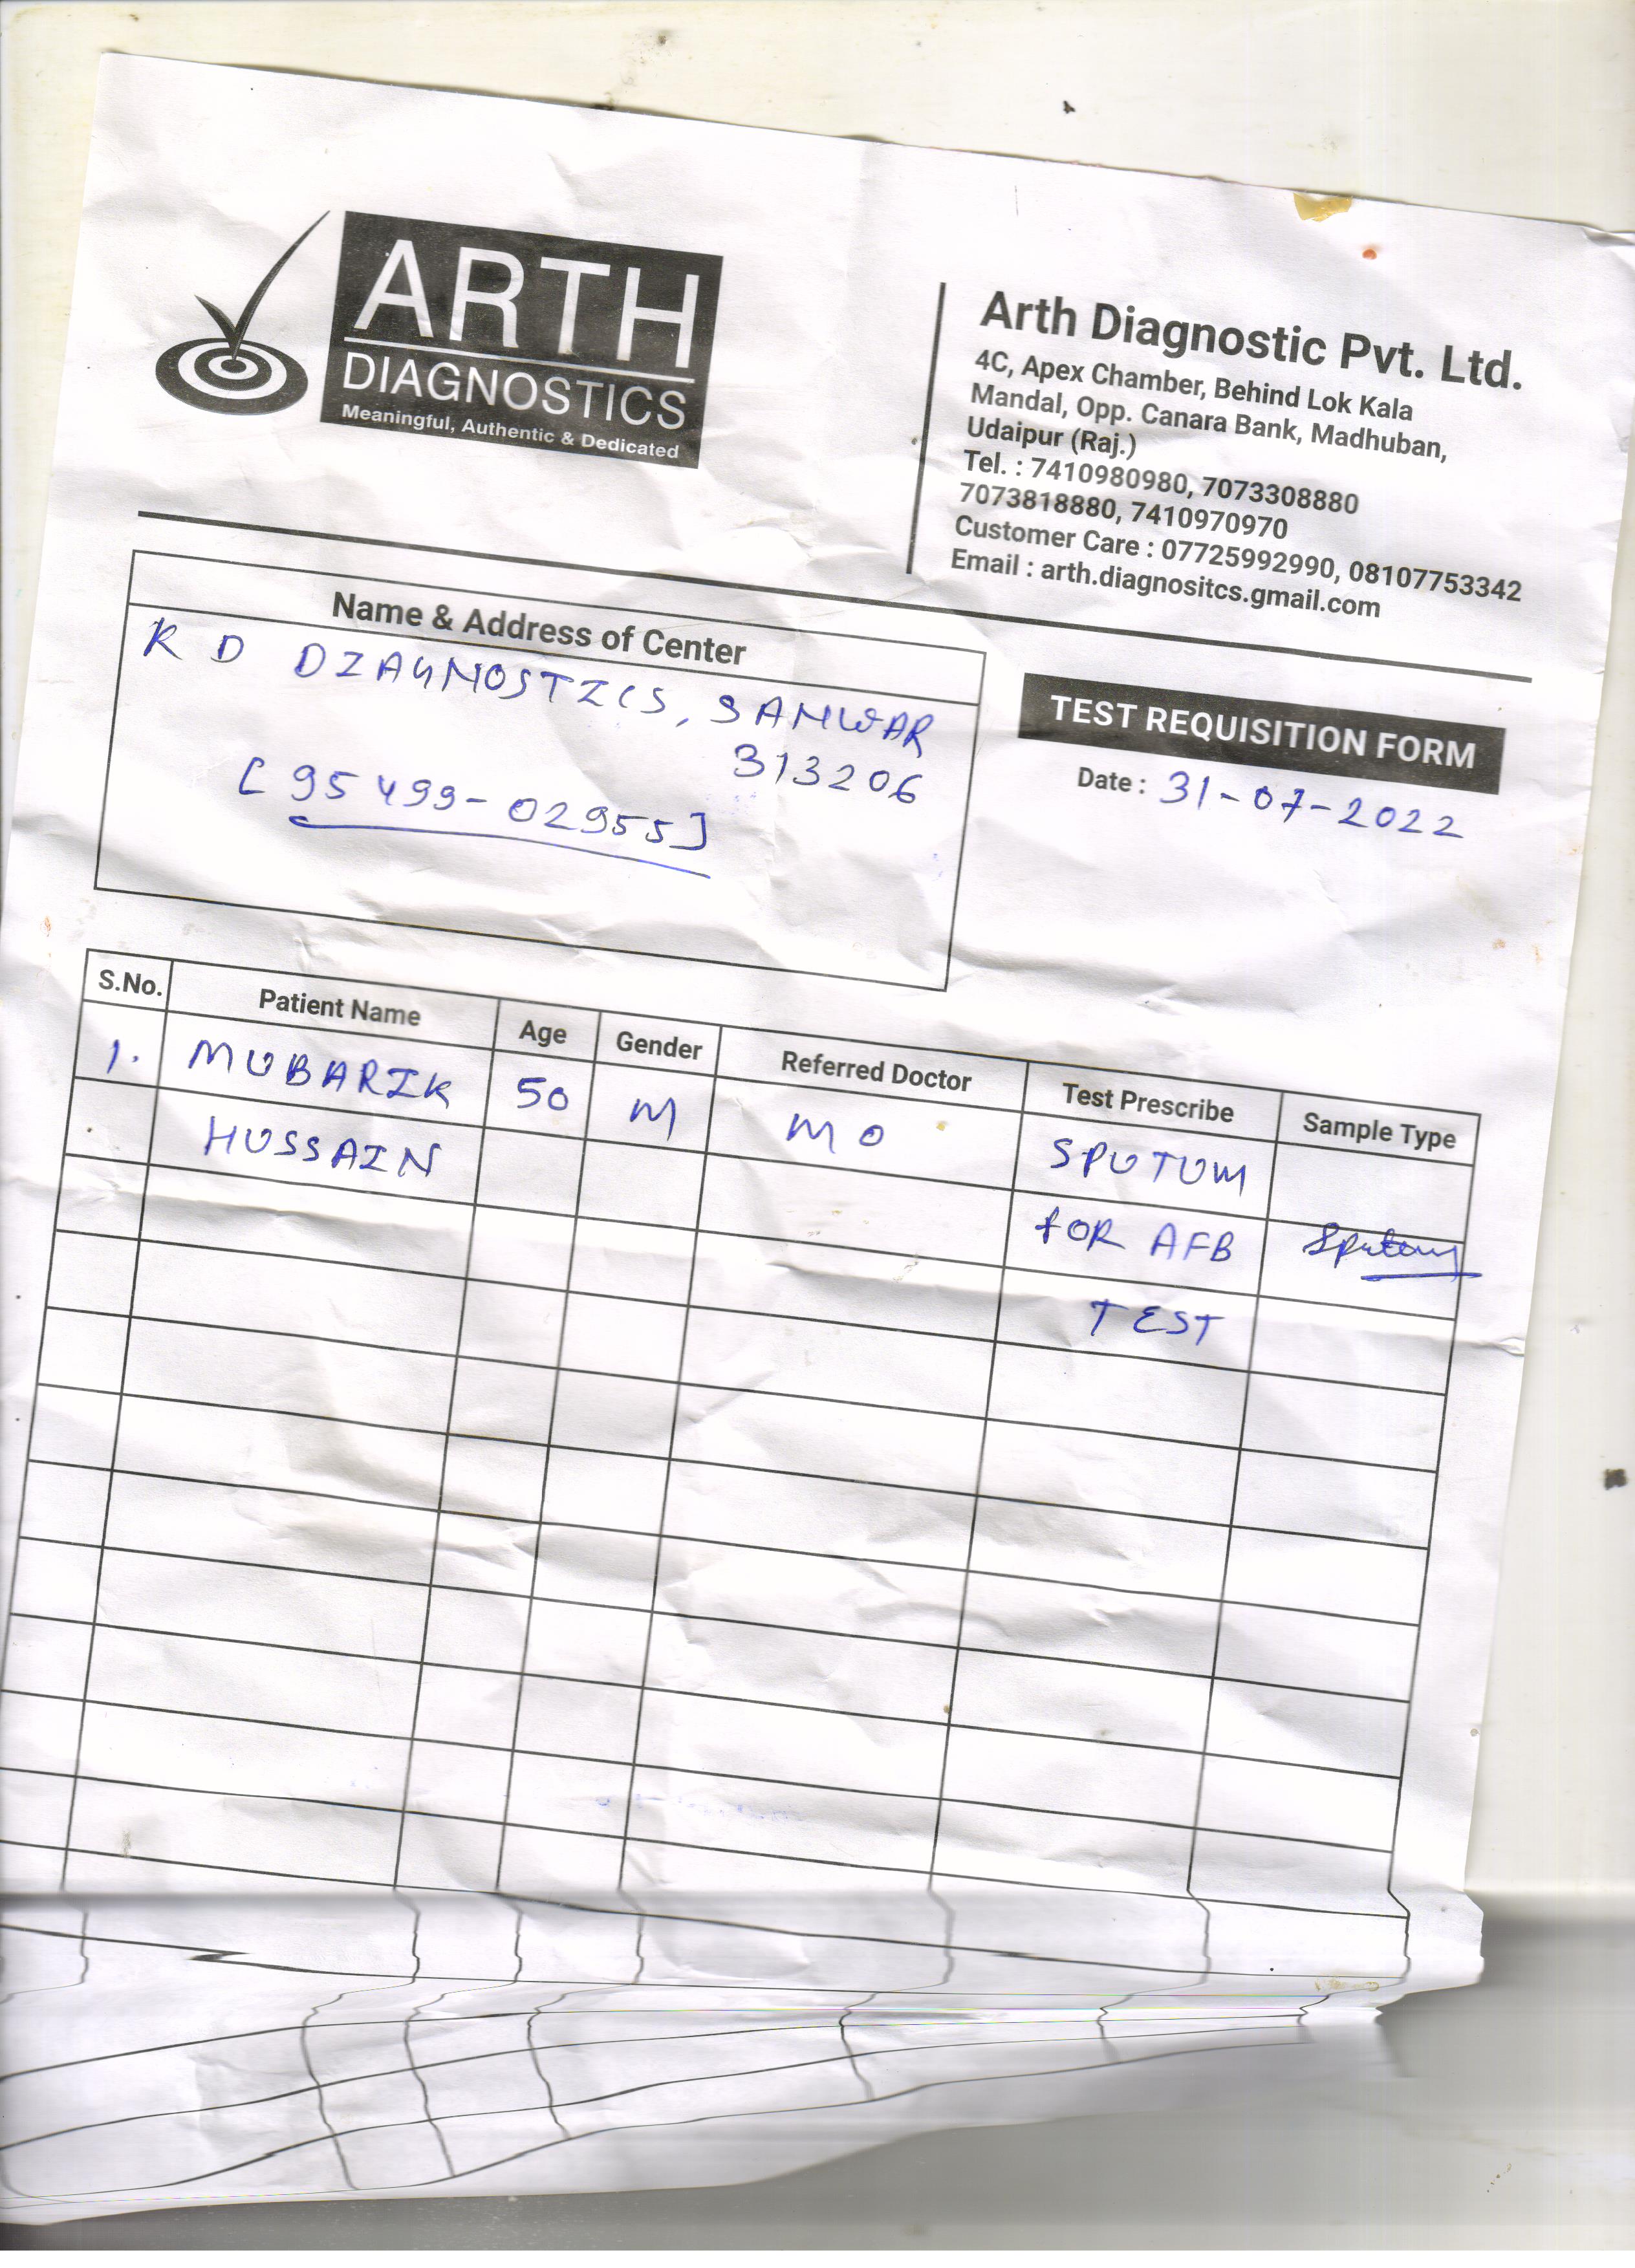 ARTH
DIAGNOSTICS
Meaningful, Authentic & Dedicated
Arth Diagnostic Pvt. Ltd.
4C, Apex Chamber, Behind Lok Kala
Mandal, Opp. Canara Bank, Madhuban,
Udaipur (Raj.)
Tel. : 7410980980, 7073308880
7073818880, 7410970970
Customer Care : 07725992990, 08107753342
Email : arth.diagnositcs.gmail.com
Name & Address of Center
R D DIAGNOSTICS, SANWAR
313206
[95499-02955]
TEST REQUISITION FORM
Date : 31-07-2022
S.No. Patient Name Age Gender Referred Doctor Test Prescribe Sample Type
1. MUBARIK 50 M MO SPUTUM
HUSSAIN FOR AFB Sputum
TEST